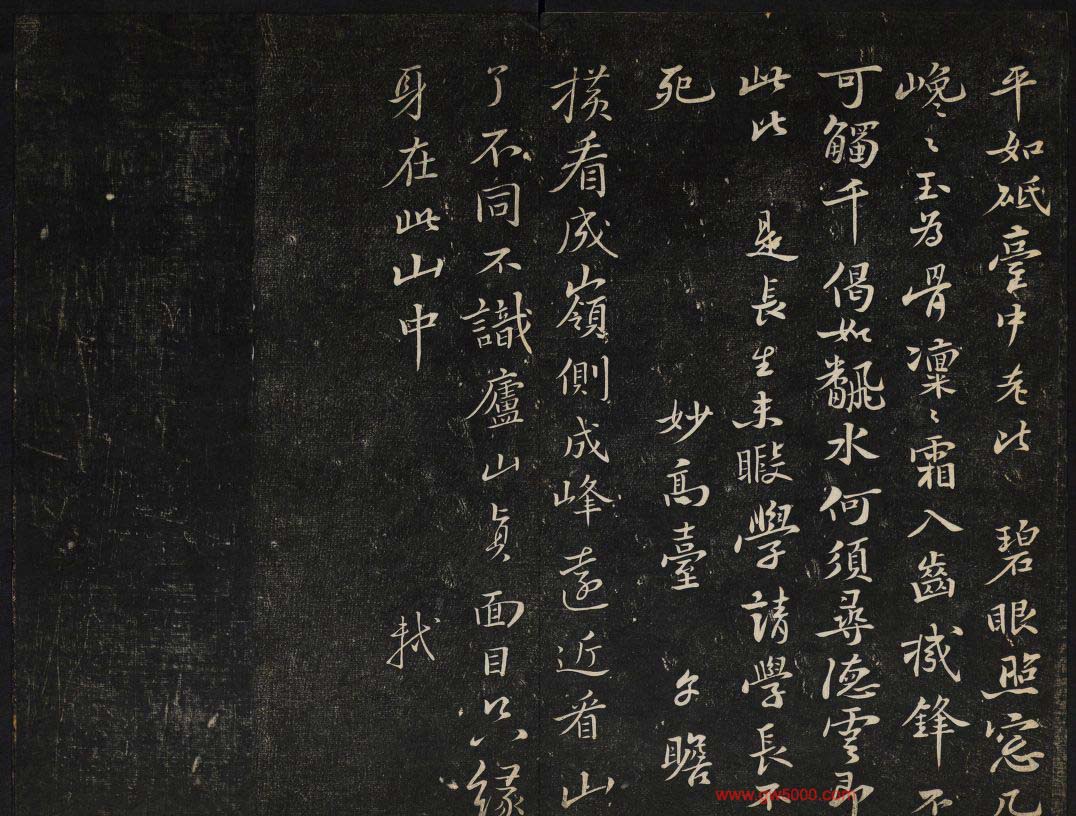 平如砥臺中老比 碧眼照窓几
巉〻玉為骨凛〻霜入齒機鋒不
可觸千偈如飜水何須尋德雲即
此比 是長生未暇學請學長不
死 妙高臺 子瞻
橫看成嶺側成峰遠近看山
了不同不識廬山真面目只緣
身在此山中 軾
www.gw5000.com